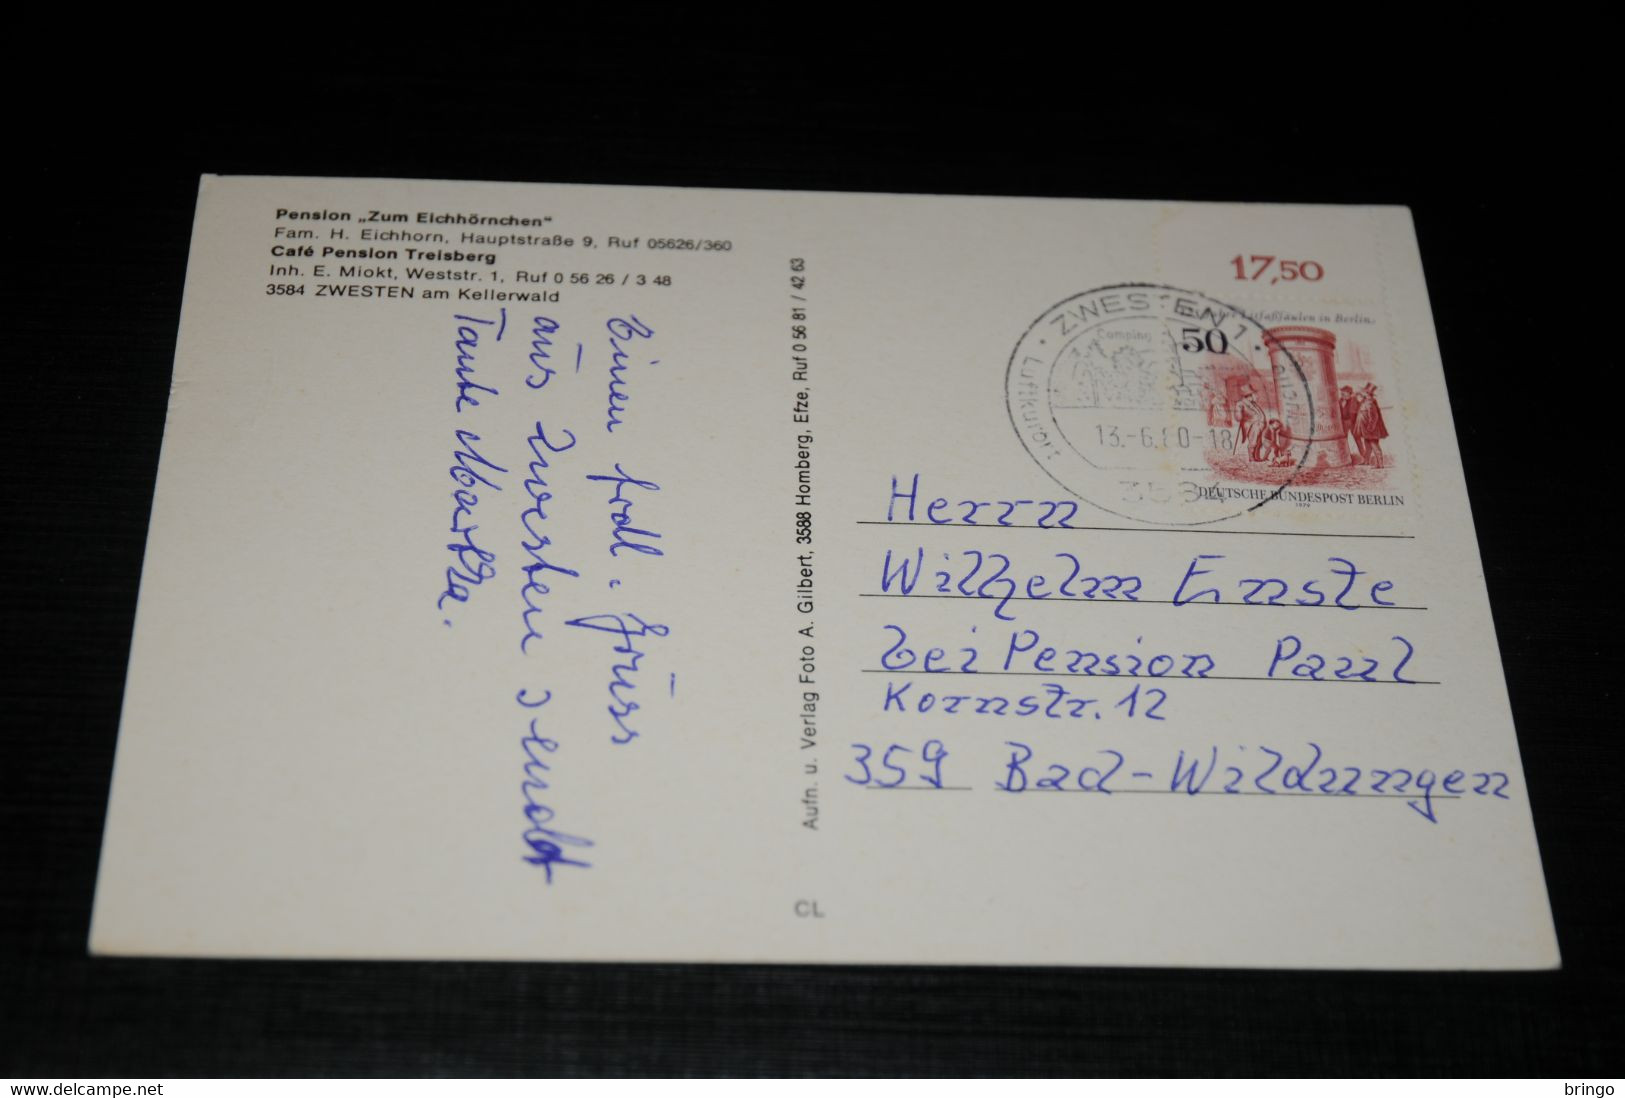 Pension „Zum Eichhörnchen“
Fam. H. Eichhorn, Hauptstraße 9, Ruf 05626/360
Café Pension Treisberg
Inh. E. Miokt, Weststr. 1, Ruf 0 56 26 / 3 48
3584 ZWESTEN am Kellerwald
Einen frdl. Grüss
aus Zwesten sendet
Tante Martha.
Aufn. u. Verlag Foto A. Gilbert, 3588 Homberg, Efze, Ruf 0 56 81 / 42 63
CL
17,50
Litfaßsäulen in Berlin.
50
DEUTSCHE BUNDESPOST BERLIN
1979
ZWESTEN 1
Camping
Luftkurort
13.-6.80-18
3584
Herrn
Wilhelm Ernste
bei Pension Paul
Kornstr. 12
359 Bad-Wildungen
delcampe.net
bringo